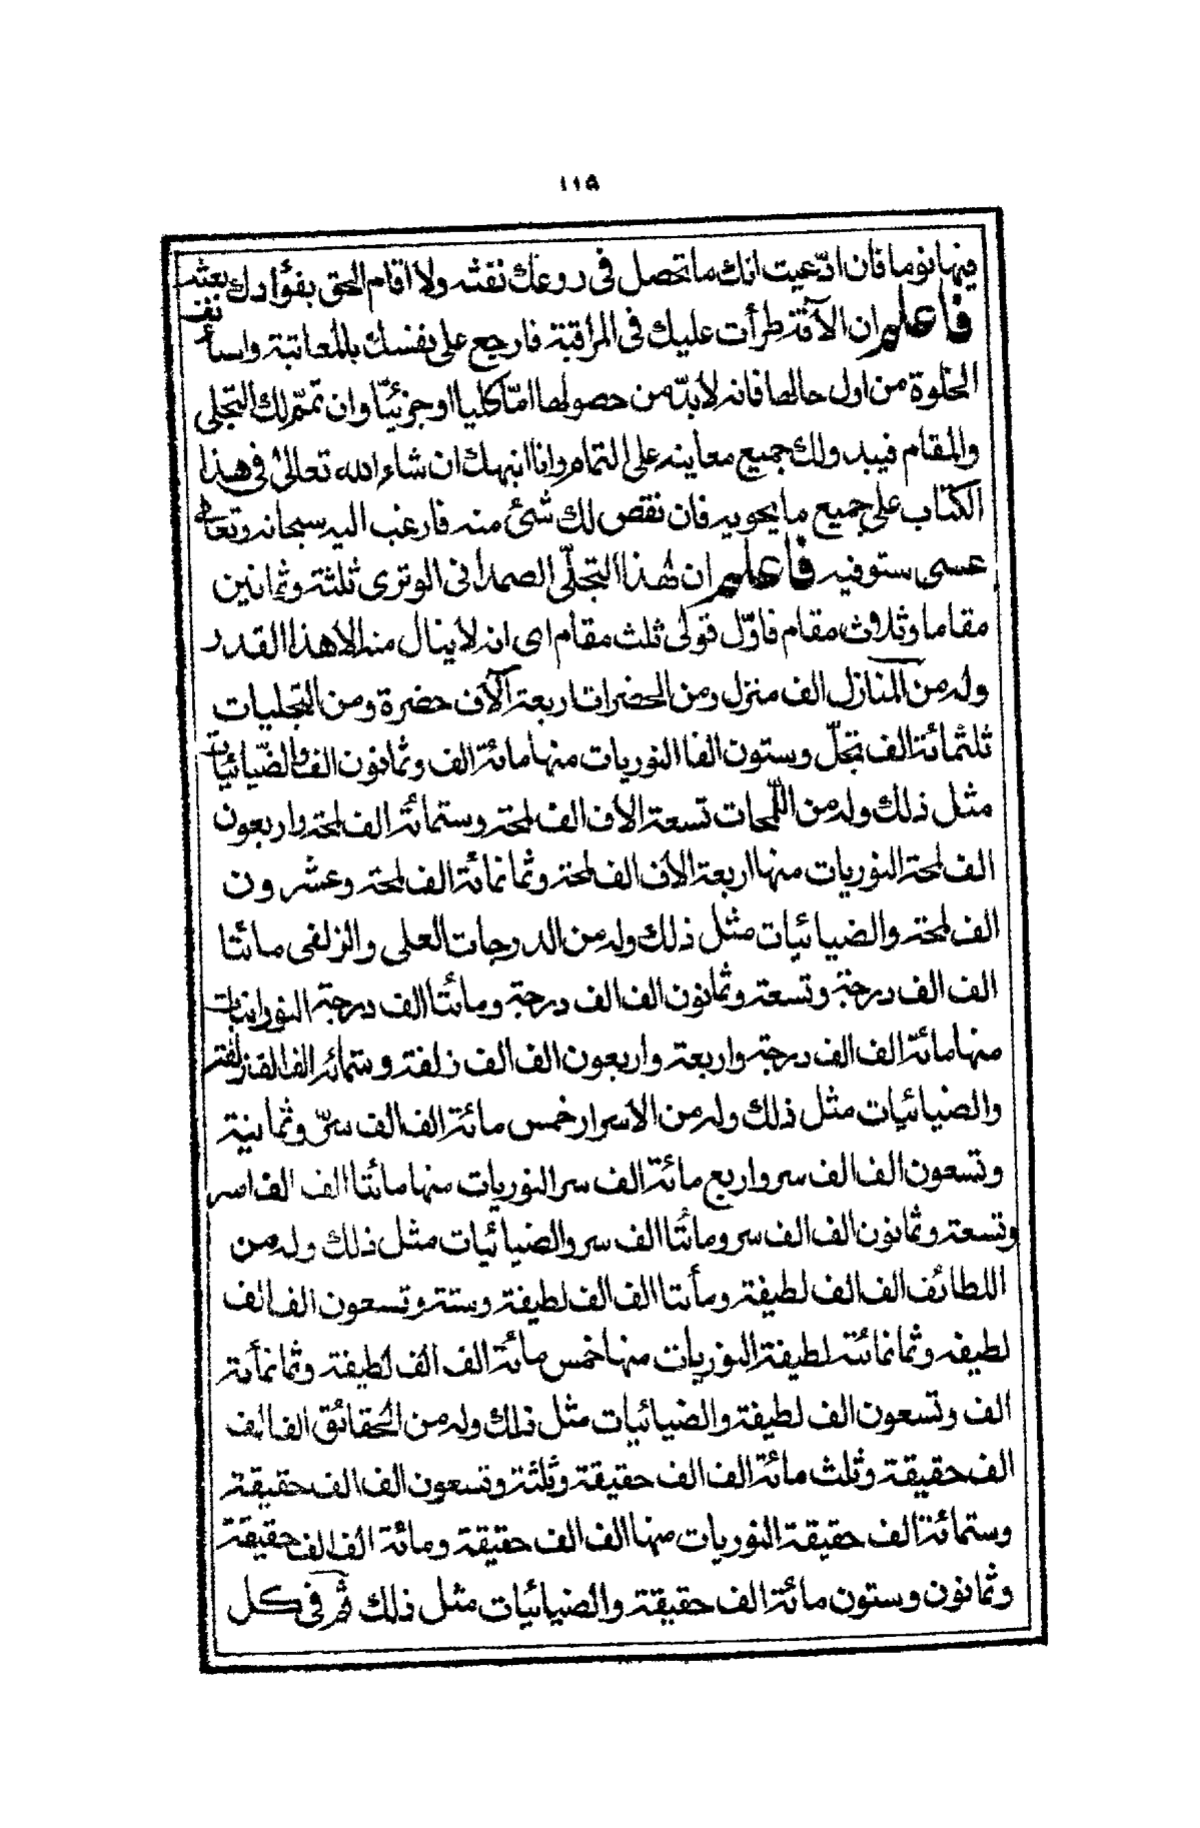 ١١٥
فيها نوما فان ادّعيت انك ما تحصل فى روعك نفثه ولا اقام الحق بفؤادك بعثه
فاعلم ان الآفة طرأت عليك فى المراقبة فارجع على نفسك بالمعاتبة واستأنف
الخلوة من اول حالها فانه لابدّ من حصولها امّا كليا او جزئيّا وان تمّم لك التجلى
والمقام فيبدو لك جميع معاينه على التمام وانا انبهك ان شاء الله تعالى فى هذا
الكتاب على جميع ما يحويه فان نقص لك شئ منه فارغب اليه سبحانه وتعالى
عسى ستوفيه فاعلم ان لهذا التجلّى الصمدانى الوترى ثلثة وثمانين
مقاما وثلاث مقام فاوّل قولى ثلث مقام اى انه لا ينال منه الا هذا القدر
وله من المنازل الف منزل ومن الحضرات اربعة آلاف حضرة ومن التجليات
ثلثمائة الف تجلّ وستون الفا النوريات منها مائة الف وثمانون الفا والضيائيات
مثل ذلك وله من اللّمحات تسعة الاف الف لمحة وستمائة الف لمحة واربعون
الف لمحة النوريات منها اربعة الاف الف لمحة وثمانمائة الف لمحة وعشرون
الف لمحة والضيائيات مثل ذلك وله من الدرجات العلى والزلفى مائتا
الف الف درجة وتسعة وثمانون الف الف درجة ومائتا الف درجة النورانيات
منها مائة الف الف درجة واربعة واربعون الف الف زلفة وستمائة الف الف زلفة
والضيائيات مثل ذلك وله من الاسرار خمس مائة الف الف سرّ وثمانية
وتسعون الف الف سر واربع مائة الف سر النوريات منها مائتا الف الف اسر
وتسعة وثمانون الف الف سر ومائتا الف سر والضيائيات مثل ذلك وله من
اللطائف الف الف لطيفة ومأتتا الف الف لطيفة وستة وتسعون الف الف
لطيفه وثمانمائة لطيفة النوريات منها خمس مائة الف الف لطيفة وثمانمأئة
الف وتسعون الف لطيفة والضيائيات مثل ذلك وله من الحقائق الف الف
الف حقيقة وثلث مائة الف الف حقيقة وثلثة وتسعون الف الف حقيقة
وستمائة الف حقيقة النوريات منها الف الف حقيقة ومائة الف الف حقيقة
وثمانون وستون مائة الف حقيقة والضيائيات مثل ذلك ثم فى كل